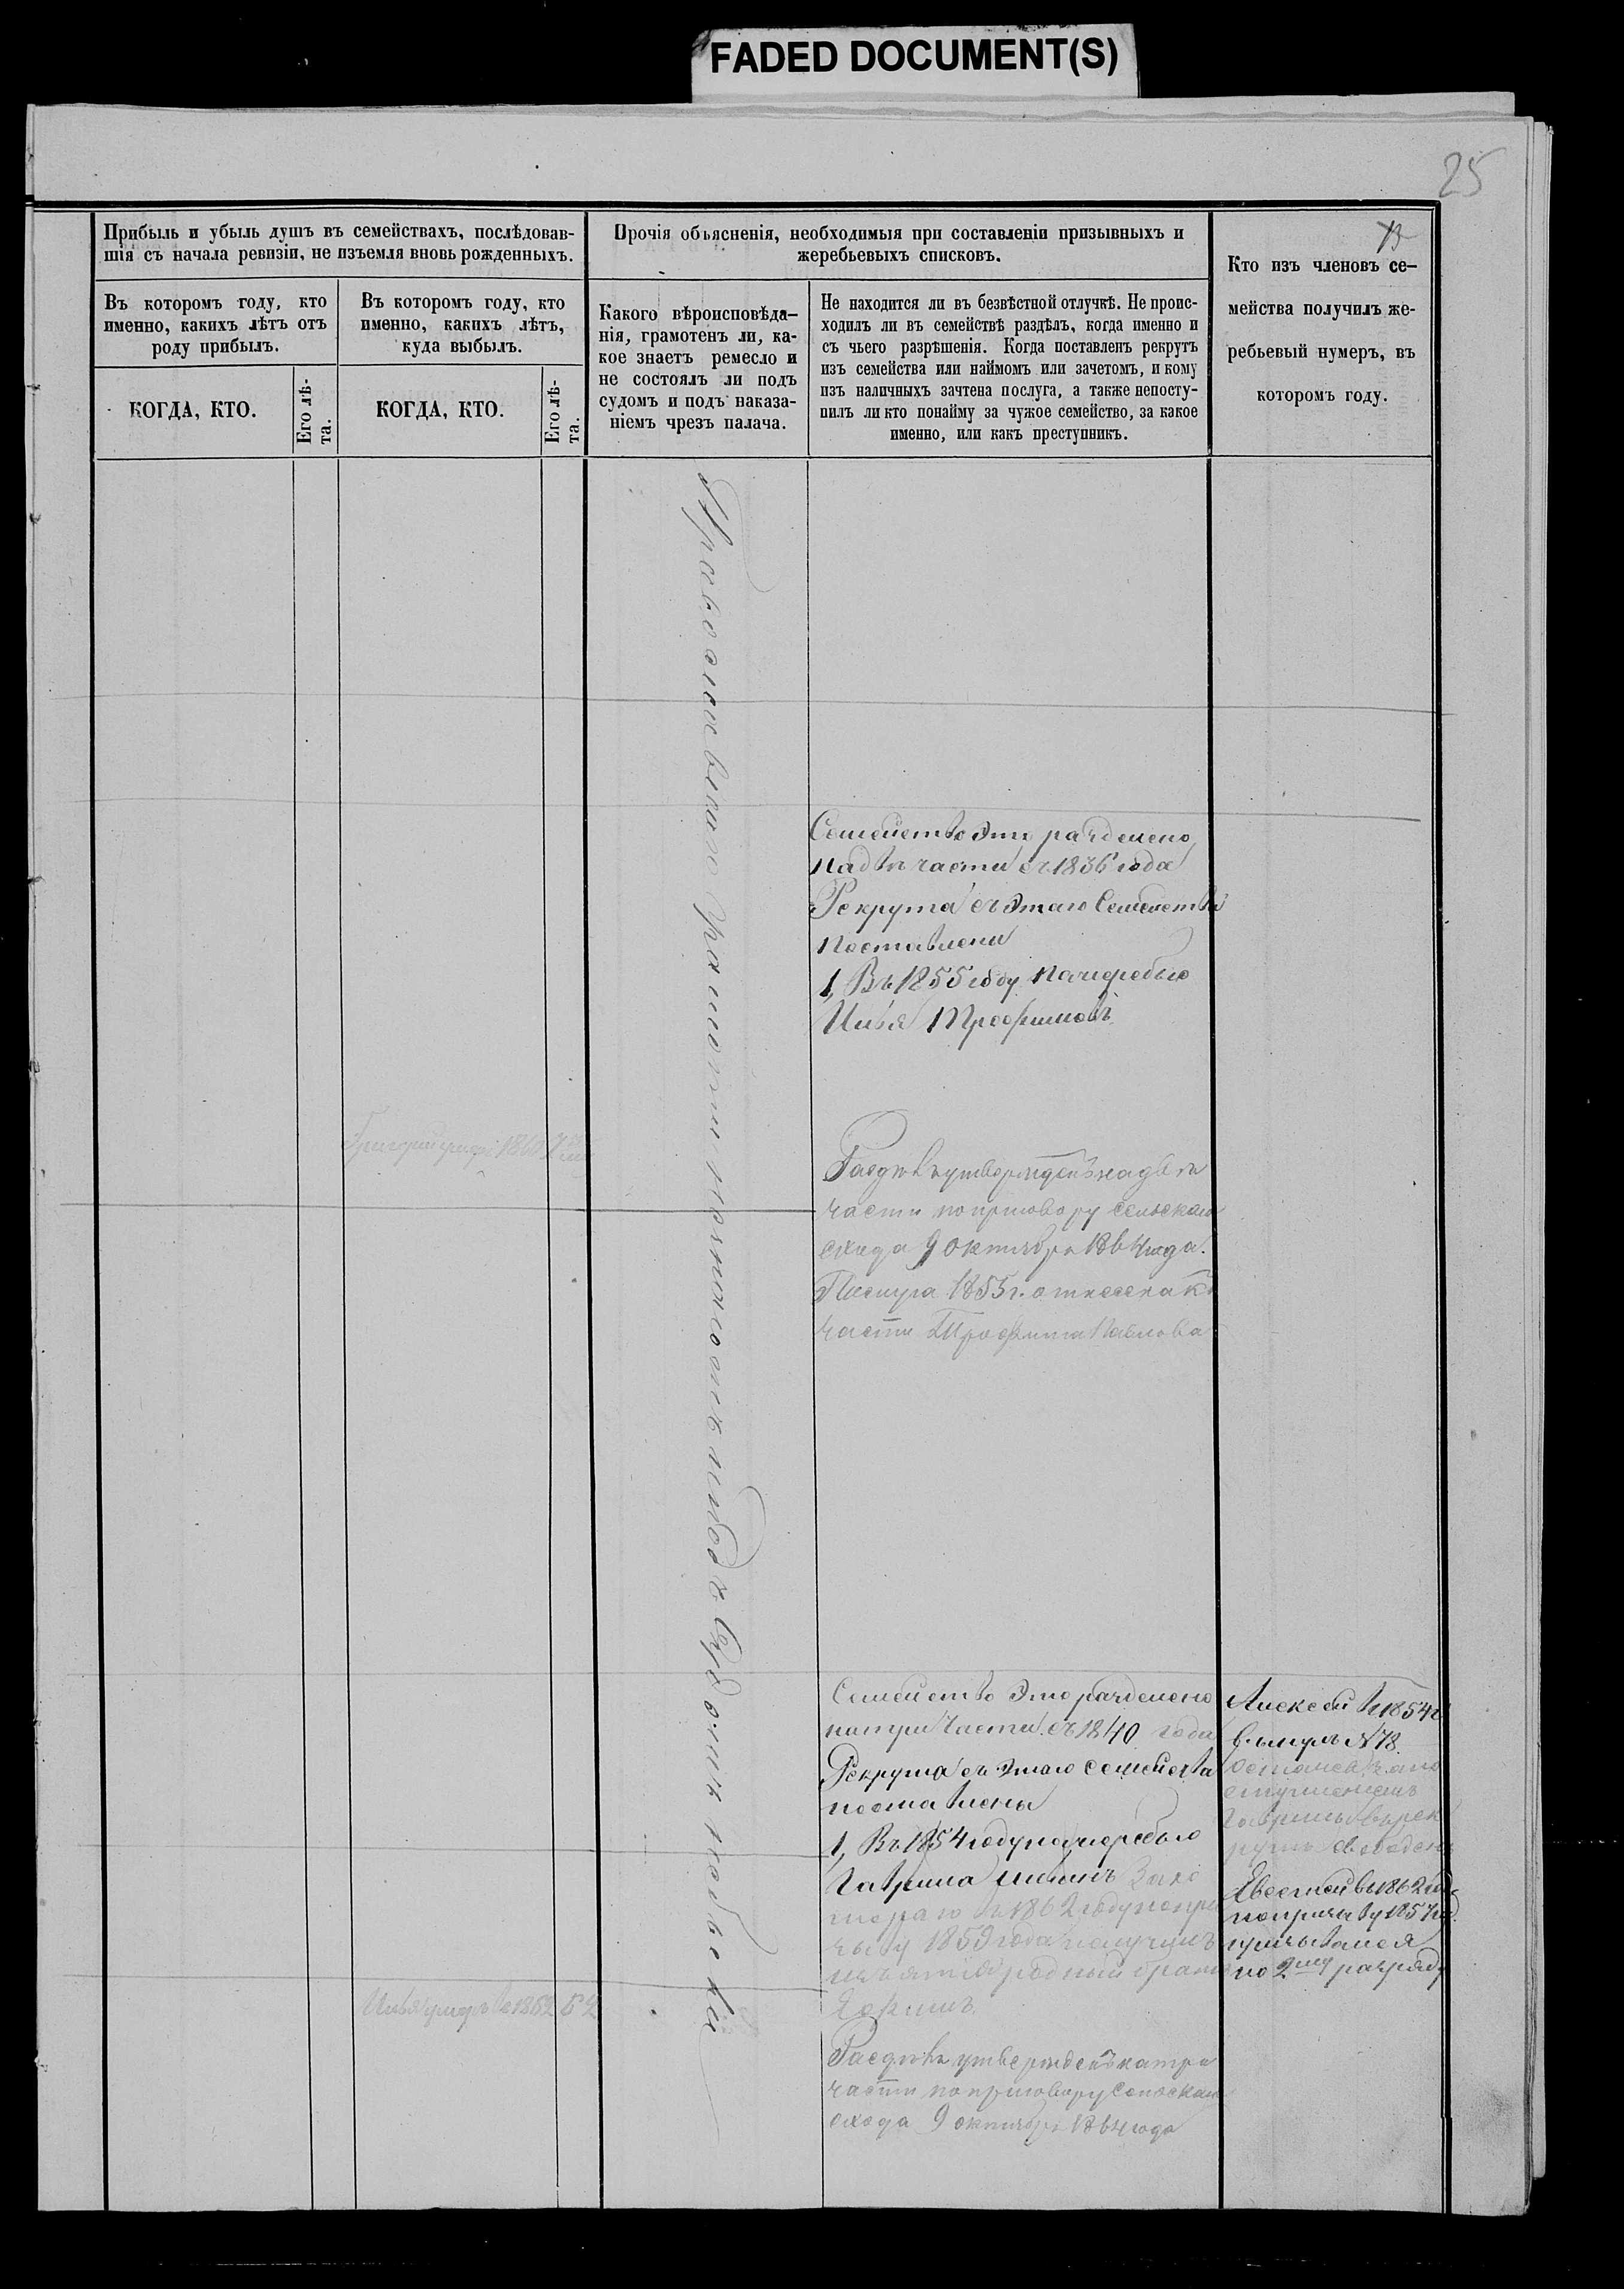 FADED DOCUMENT(S)
25
Прибыль и убыль душъ въ семействахъ, послѣдовав-
шія съ начала ревизіи, не изъемля вновь рожденныхъ.
Прочія объясненія, необходимыя при составленіи призывныхъ и
жеребьевыхъ списковъ.
Кто изъ членовъ се-
мейства получилъ же-
ребьевый нумеръ, въ
которомъ году.
Въ которомъ году, кто
именно, какихъ лѣтъ отъ
роду прибылъ.
Въ которомъ году, кто
именно, какихъ лѣтъ,
куда выбылъ.
Какого вѣроисповѣда-
нія, грамотенъ ли, ка-
кое знаетъ ремесло и
не состоялъ ли подъ
судомъ и подъ наказа-
ніемъ чрезъ палача.
Не находится ли въ безвѣстной отлучкѣ. Не проис-
ходилъ ли въ семействѣ раздѣлъ, когда именно и
съ чьего разрѣшенія. Когда поставленъ рекрутъ
изъ семейства или наймомъ или зачетомъ, и кому
изъ наличныхъ зачтена послуга, а также непосту-
пилъ ли кто понайму за чужое семейство, за какое
именно, или какъ преступникъ.
КОГДА, КТО.
Его лѣ-
та.
КОГДА, КТО.
Его лѣ-
та.
Православнаго грамоти
Семейство это разделено
на двѣ части съ 1836 года
Рекрута съ этаго Семейства
поставлены
1, Въ 1855 году пожеребью
Илья Трофимовъ
Григорій умеръ 186
Раздѣлъ утвержденъ на двѣ
части по приговору сельскаго
схода 9 октября 1864 года.
Послуга 1855 г. отнесена къ
части Трофима Павлова
Семейство это разделено
на три части съ 1840 года
Рекрута съ этаго семейства
поставлены
1, Въ 1854 году пожеребью
Гаврила Зако
тораго въ 1862 году по при
зыву 1859 года получилъ
родный братъ
Ефимъ
Илья умеръ въ 1862 52
Раздѣлъ утвержденъ на три
части по приговору Сельскаго
схода 9 октября 1864 года
Алексей въ 1854 г
вынулъ № 78.
остался за по
ступленіемъ
Гаврилы въ рек
руты свободенъ
Евсетей въ 1862 году
по призыву 1857 год
призывался
по 2му разряду